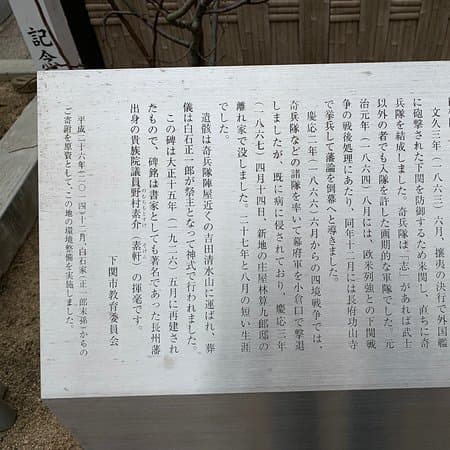 文久三年(一八六三)六月、攘夷の決行で外国艦
に砲撃された下関を防御するため来関し、直ちに奇
兵隊を結成しました。奇兵隊は、「志」があれば武士
以外の者でも入隊を許した画期的な軍隊でした。元
治元年(一八六四)八月には、欧米列強との下関戦
争の戦後処理にあたり、同年十二月には長府功山寺
で挙兵して藩論を倒幕へと導きました。
慶応二年(一八六六)六月からの四境戦争では、
奇兵隊などの諸隊を率いて幕府軍を小倉口で撃退
しましたが、既に病に侵されており、慶応三年
(一八六七)四月十四日、新地の庄屋林算九郎邸の
離れ家で没しました。二十七年と八月の短い生涯
でした。
遺骸は奇兵隊陣屋近くの吉田清水山に運ばれ、葬
儀は白石正一郎が祭主となって神式で行われました。
この碑は大正十五年(一九二六)五月に再建され
たもので、碑銘は書家としても著名であった長州藩
出身の貴族院議員野村素介(素軒)の揮毫です。
下関市教育委員会
平成二十六年(二〇一四)十二月、白石家(正一郎末孫)からの
ご寄附を原資として、この地の環境整備を実施しました。
記念